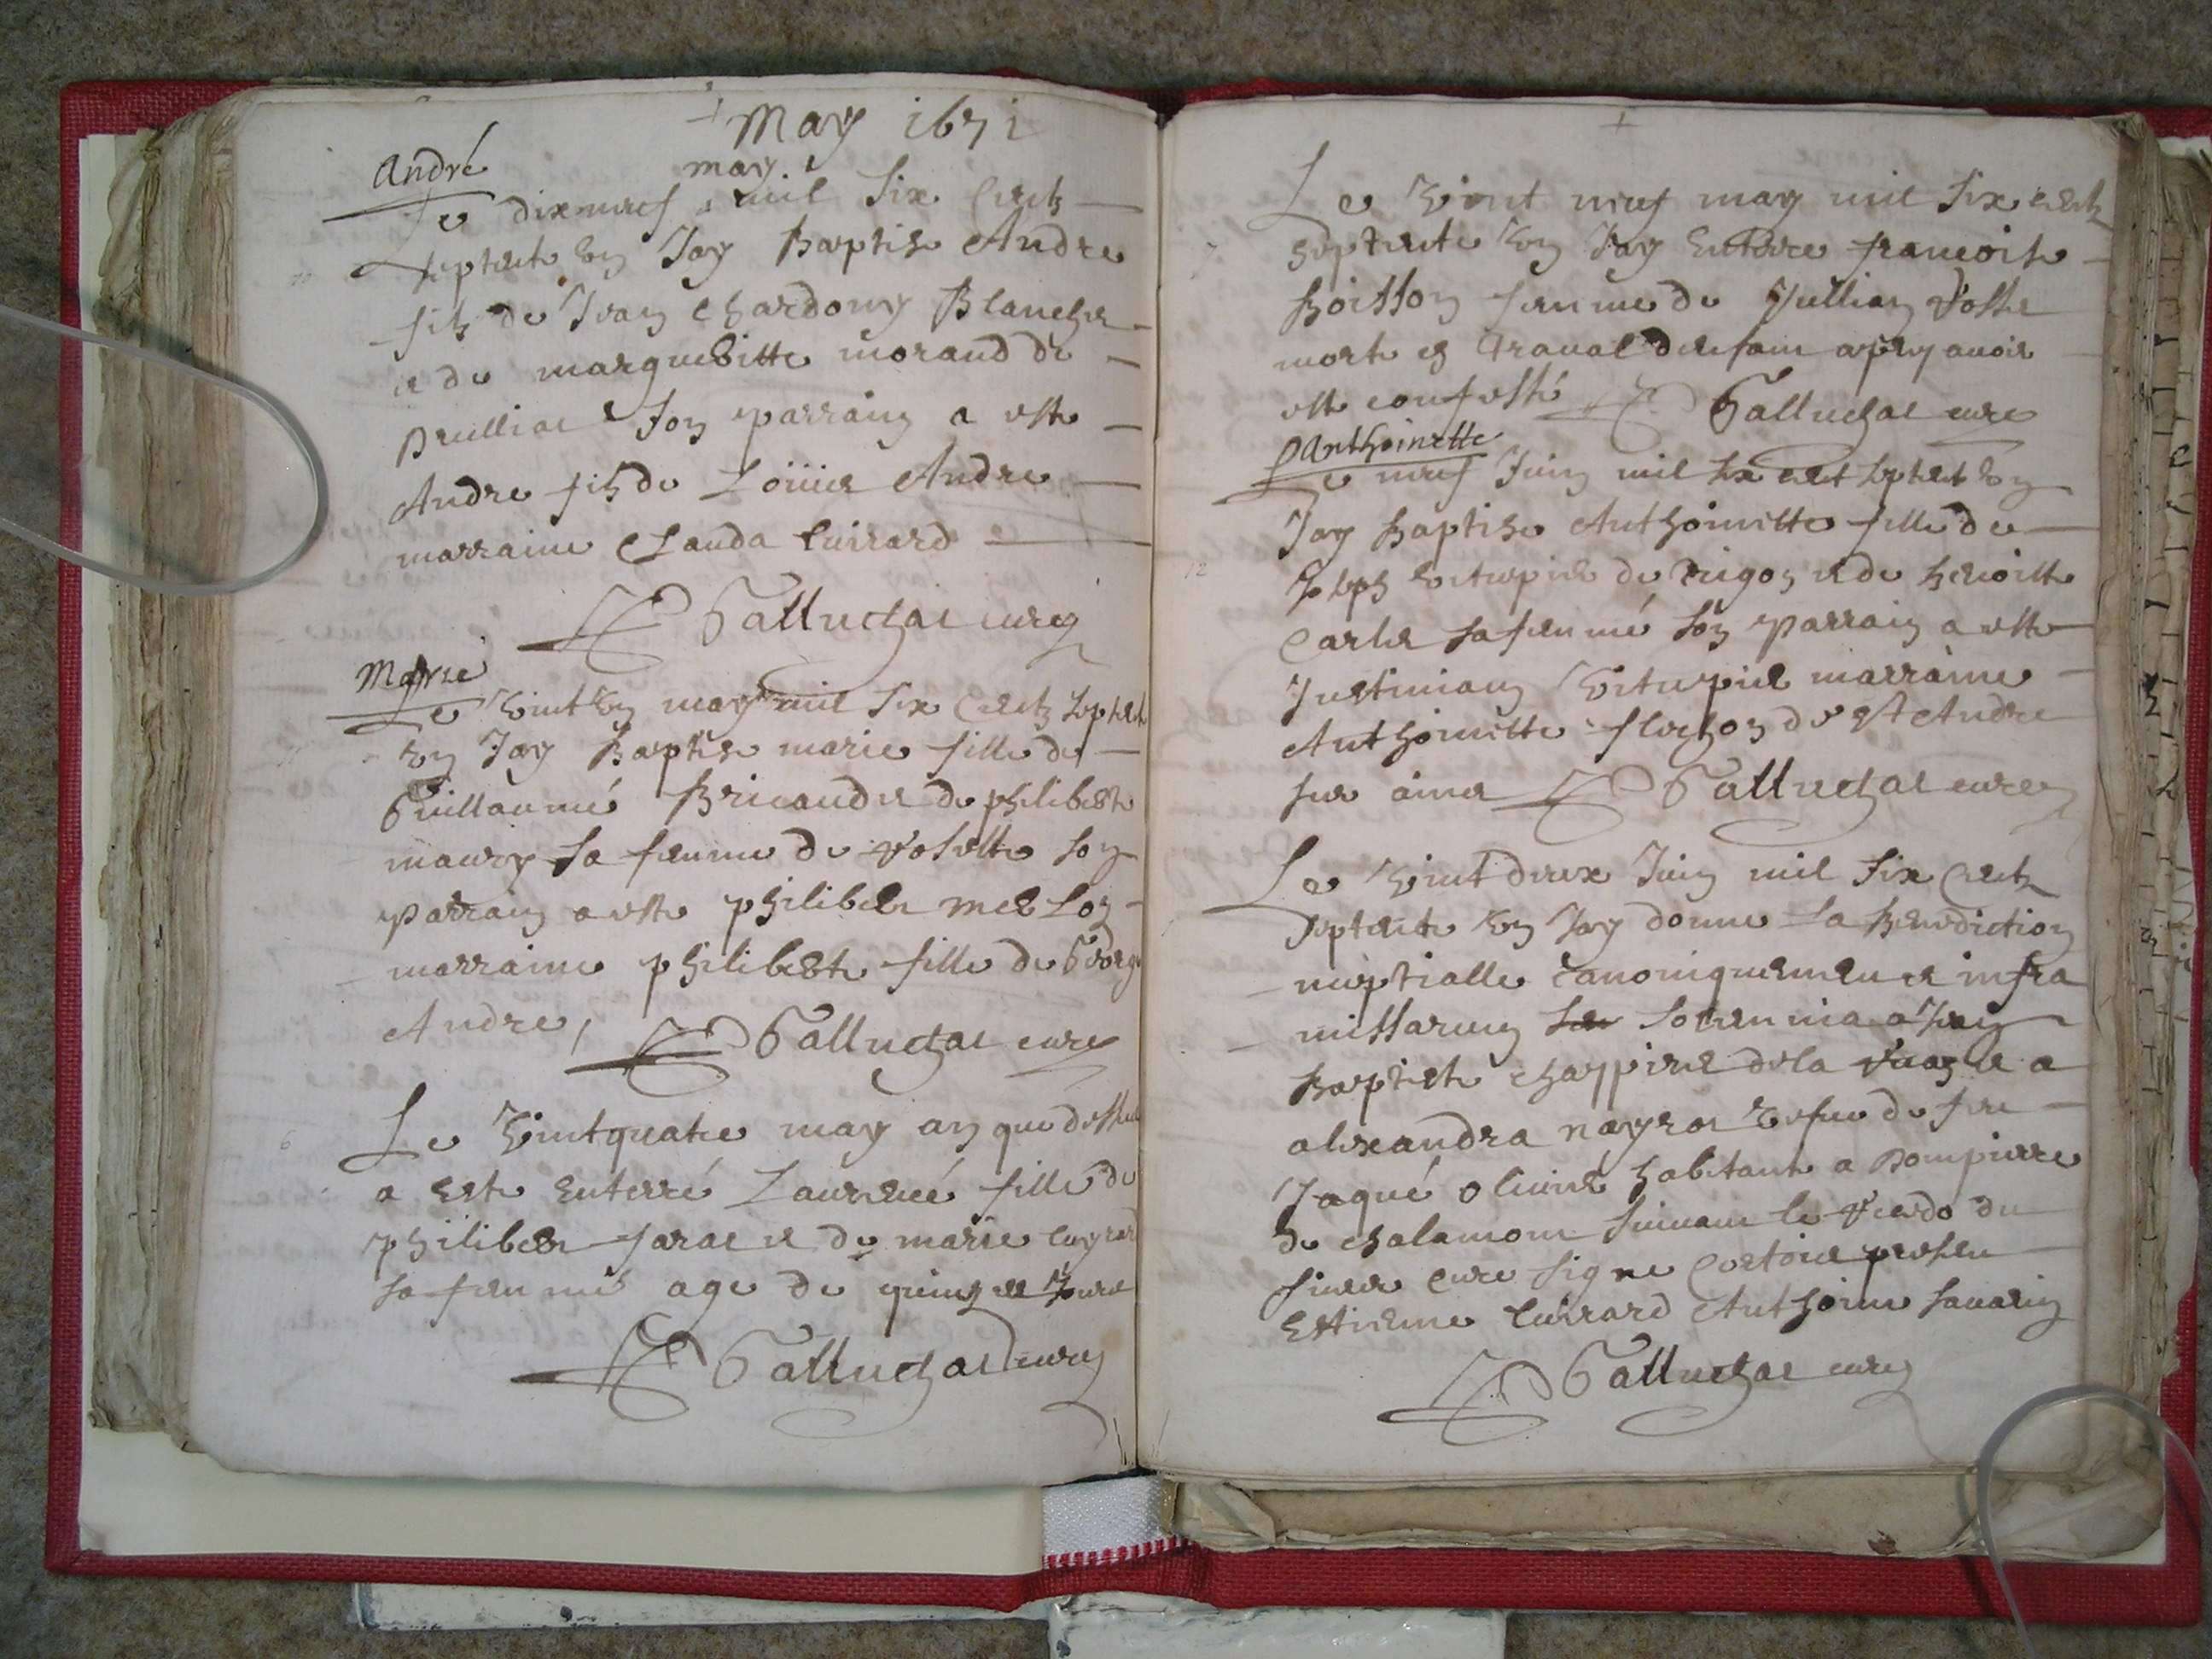 May 1671
André
may
Le dixneuf mil six centz
septente un Jay Baptise Andre
filz de Jean Chardony Blancher
e de margueritte morand de
pruilliac son parrain a este
Andre filz de Loüis Andre
marraine Clauda Cuirard
Galluchat cure
Marie
Le vint un may mil six centz septente
un Jay Baptise marie fille de
Guillaumé Bricaud e de philiberte
maury sa femme de son
parrain a este philiber
marraine philiberte fille de George
Andre, Galluchat cure
6
Le vintquatre may an que dessus
a este enterré Laurencé fille de
philiber farae e de marie
sa femme age de quinze Jours
Galluchat cure
Le vint neuf may mil six centz
7
septente un Jay enterre francoise
Boisson femme de Jullien
morte en traual denfan apres auoir
este confessé Galluchat cure
Anthoinette
Le neuf Juin mil six cent septent un
Jay Baptise Anthoinette fille de
12
de e de Benoiste
Carle sa femmé son parrain a este
Justinian marraine
Anthoinette flechon de st Andre
Galluchat cure
Le vint deux Juin mil six centz
septente un Jay donne la Benediction
nuptialle canoniquemen e infra
missarum solemnia a Jean
Baptiste de la e a
alexandra nayra vefue de feu
Jaqué oliuier habitante a Dompierre
de chalamon suiuan le du
sieur cure signe presen
Estienne Cuirard Anthoine sauarin
Galluchat cure